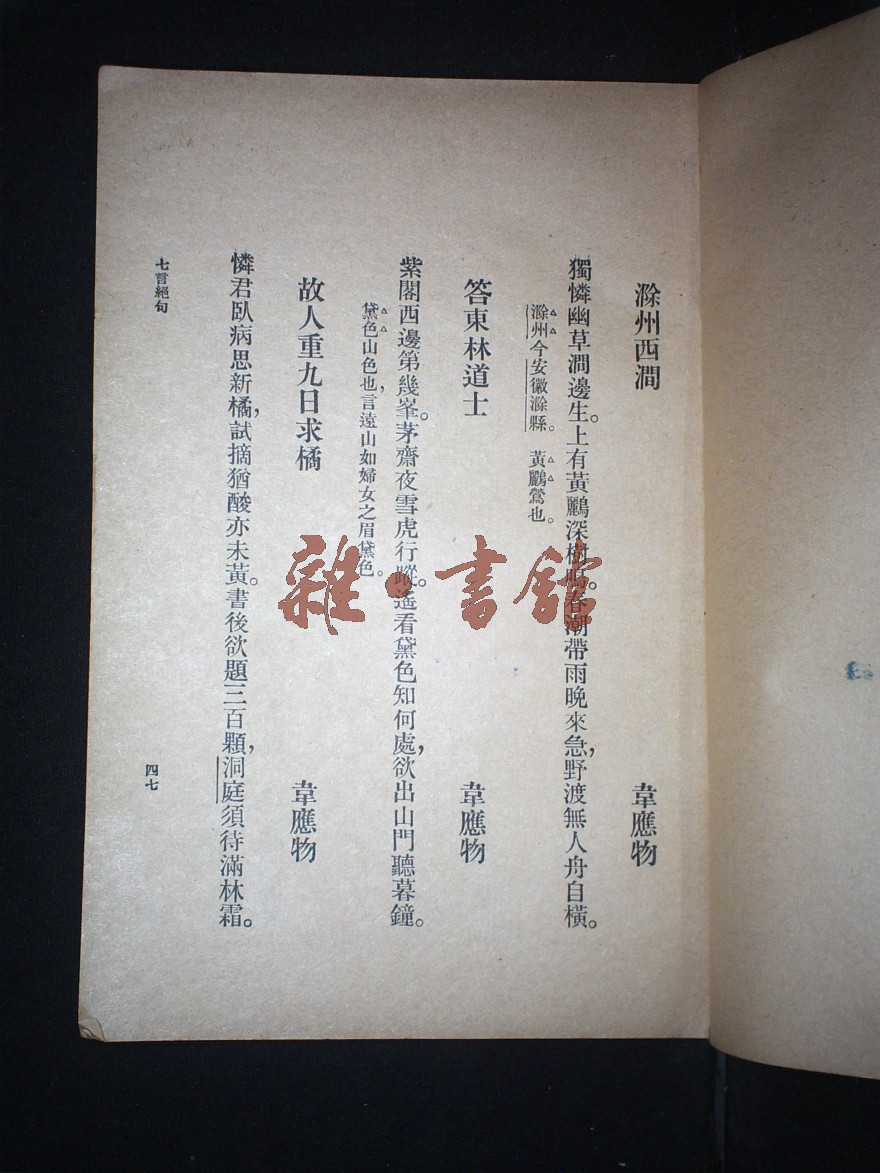 滁州西澗 韋應物
獨憐幽草澗邊生。上有黃鸝深樹鳴。春潮帶雨晚來急，野渡無人舟自橫。
滁州今安徽滁縣。 黃鸝鶯也。
答東林道士 韋應物
紫閣西邊第幾峯。茅齋夜雪虎行蹤。遙看黛色知何處，欲出山門聽暮鐘。
黛色山色也，言遠山如婦女之眉黛色。
故人重九日求橘 韋應物
憐君臥病思新橘，試摘猶酸亦未黃。書後欲題三百顆，洞庭須待滿林霜。
七言絕句
四七
雜·書館